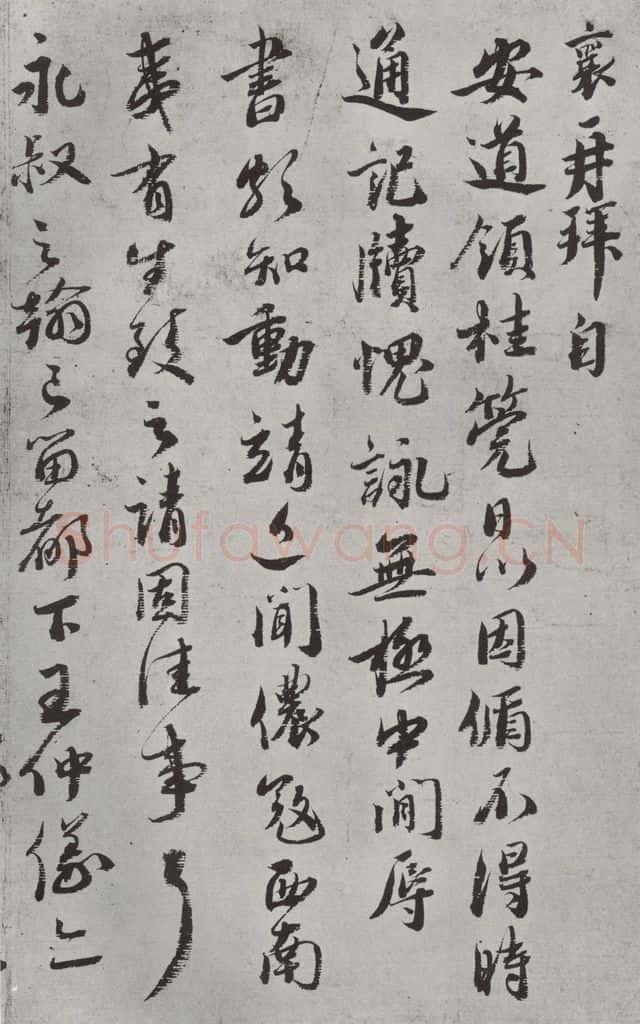 襄再拜自
安道領桂筦日以因循不得時
通記牘愧詠無極中間辱
書頗知動靖近聞儂寇西南
夷有生致之請固佳事耳
永叔之翰已留都下王仲儀亦
Shufawang.CN